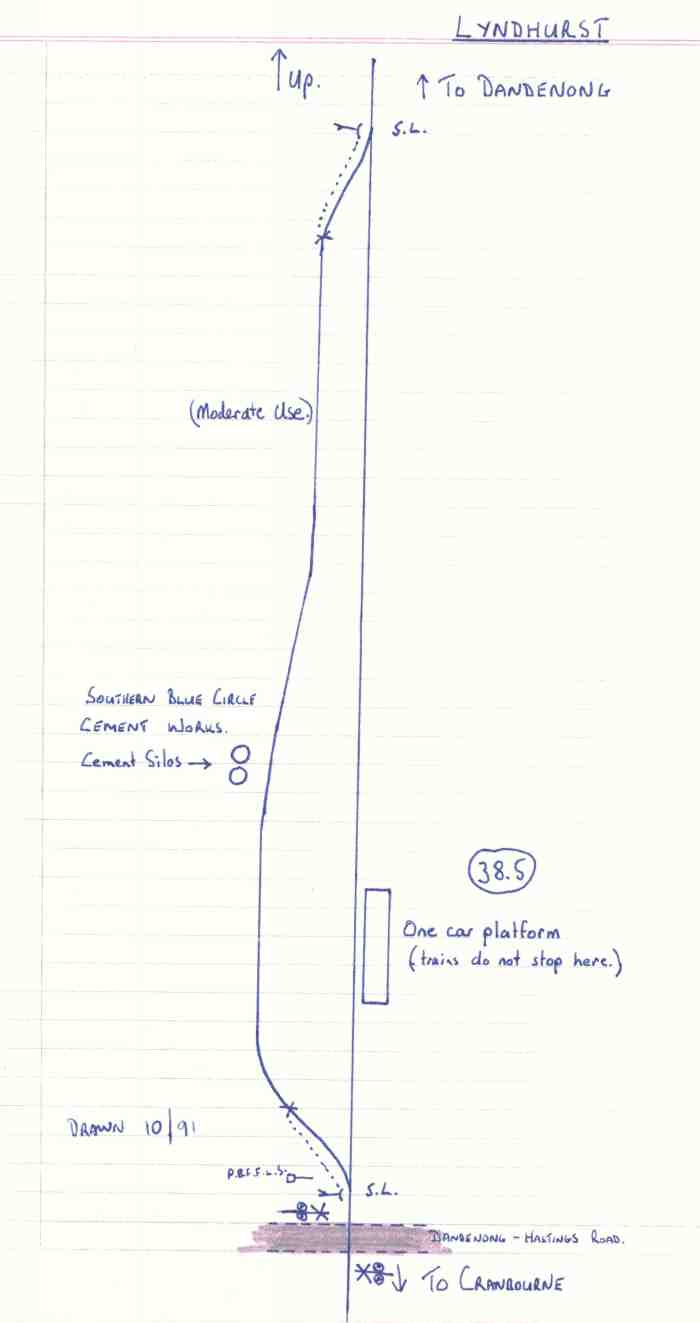 LYNDHURST
↑ Up.
↑ TO DANDENONG
S.L.
(Moderate Use.)
SOUTHERN BLUE CIRCLE
CEMENT WORKS.
Cement Silos →
38.5
One car platform
(trains do not stop here.)
DRAWN 10/91
S.L.
DANDENONG - HASTINGS ROAD.
↓ TO CRANBOURNE